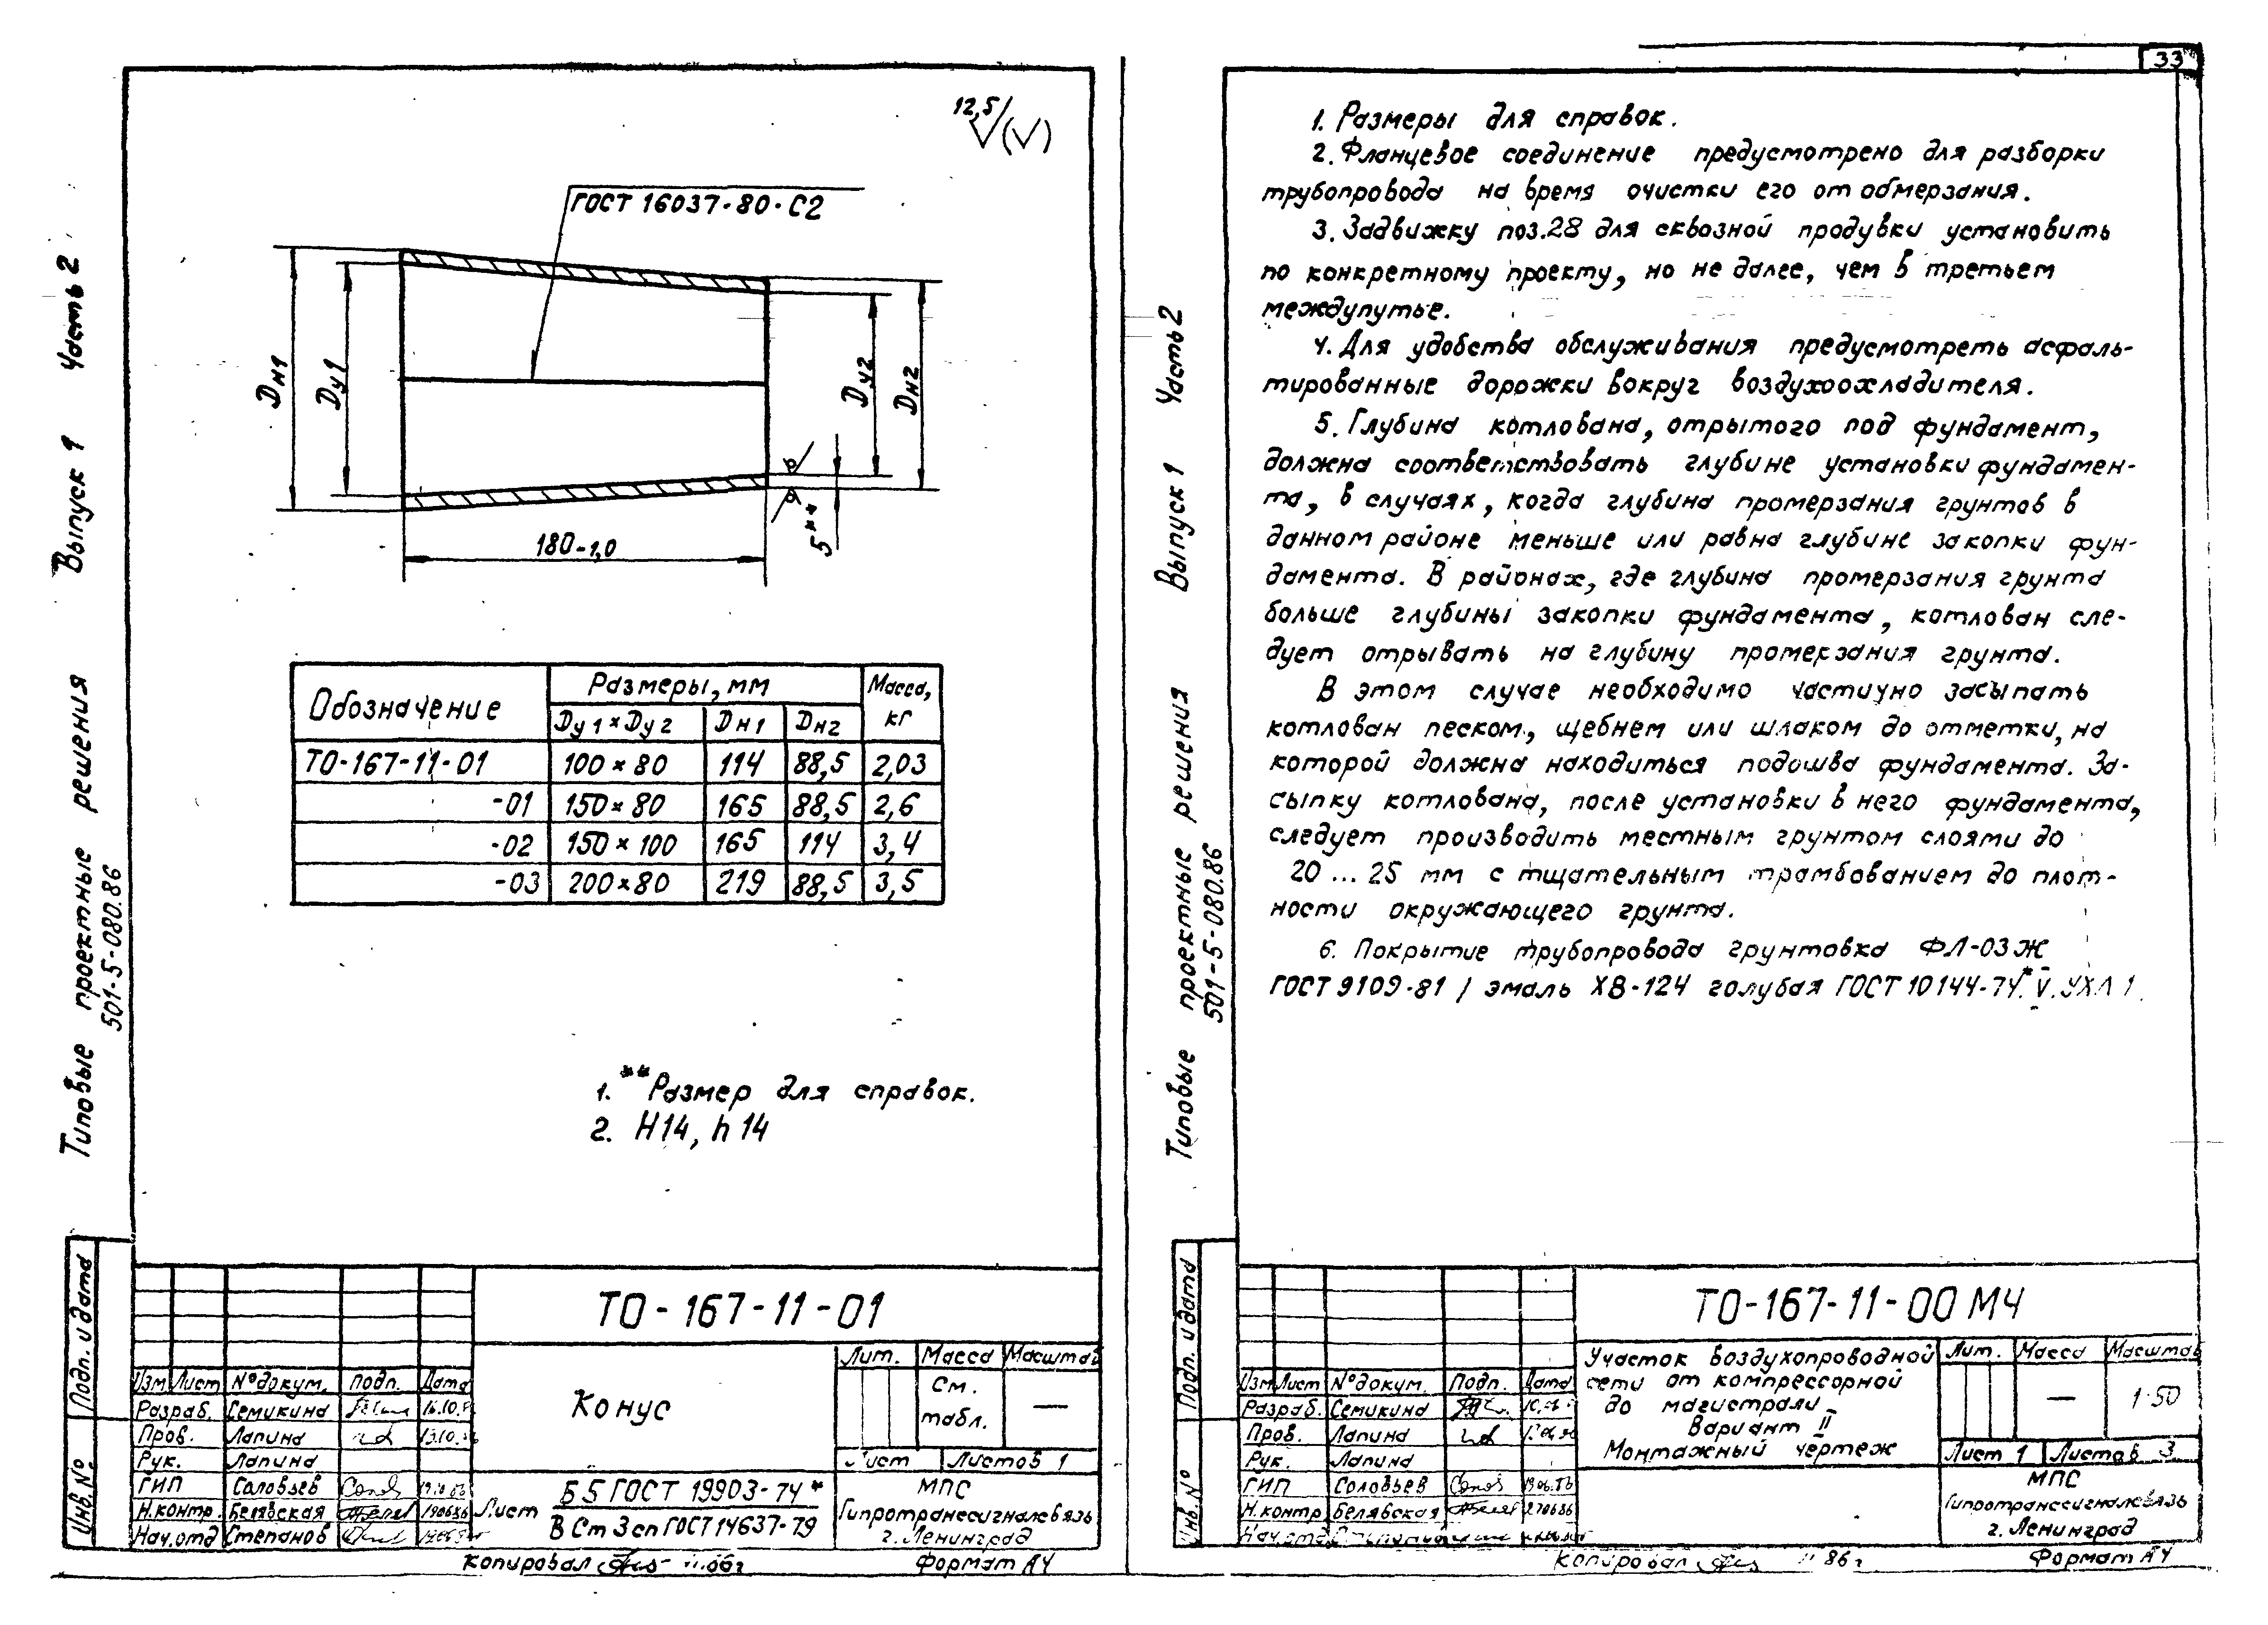 33
Типовые проектные решения Выпуск 1 Часть 2
501-5-080.86
12,5
(√)
ГОСТ 16037-80-С2
Dн1
Dу1
Dу2
Dн2
5**
180-1,0
Обозначение
Размеры, мм
Масса, кг
Dу1×Dу2 Dн1 Dн2
ТО-167-11-01 100×80 114 88,5 2,03
-01 150×80 165 88,5 2,6
-02 150×100 165 114 3,4
-03 200×80 219 88,5 3,5
1. **Размер для справок.
2. H14, h14
Подп. и дата
Инв. №
ТО-167-11-01
Лит. Масса Масштаб
Изм Лист № докум. Подп. Дата
Конус
См. табл. —
Разраб. Семикина
Пров. Лапина
Рук. Лапина
Лист Листов 1
ГИП Соловьев
Н.контр. Белявская
Нач.отд Степанов
Лист Б5 ГОСТ 19903-74*
ВСт3сп ГОСТ 14637-79
МПС
Гипротранссигналсвязь
г. Ленинград
Копировал
Формат А4
Типовые проектные решения Выпуск 1 Часть 2
501-5-080.86
1. Размеры для справок.
2. Фланцевое соединение предусмотрено для разборки
трубопровода на время очистки его от обмерзания.
3. Задвижку поз.28 для сквозной продувки установить
по конкретному проекту, но не далее, чем в третьем
междупутье.
4. Для удобства обслуживания предусмотреть асфаль-
тированные дорожки вокруг воздухоохладителя.
5. Глубина котлована, отрытого под фундамент,
должна соответствовать глубине установки фундамен-
та, в случаях, когда глубина промерзания грунтов в
данном районе меньше или равна глубине закопки фун-
дамента. В районах, где глубина промерзания грунта
больше глубины закопки фундамента, котлован сле-
дует отрывать на глубину промерзания грунта.
В этом случае необходимо частично засыпать
котлован песком, щебнем или шлаком до отметки, на
которой должна находиться подошва фундамента. За-
сыпку котлована, после установки в него фундамента,
следует производить местным грунтом слоями до
20 ... 25 мм с тщательным трамбованием до плот-
ности окружающего грунта.
6. Покрытие трубопровода грунтовка ФЛ-03Ж
ГОСТ 9109-81 / эмаль ХВ-124 голубая ГОСТ 10144-74*. V. УХЛ 1
Подп. и дата
Инв. №
ТО-167-11-00 МЧ
Участок воздухопроводной
сети от компрессорной
до магистрали
Вариант II
Монтажный чертеж
Лит. Масса Масштаб
— 1:50
Изм Лист № докум. Подп. Дата
Разраб. Семикина
Пров. Лапина
Рук. Лапина
Лист 1 Листов 3
ГИП Соловьев
Н.контр. Белявская
Нач.отд
МПС
Гипротранссигналсвязь
г. Ленинград
Копировал 86г
Формат А4